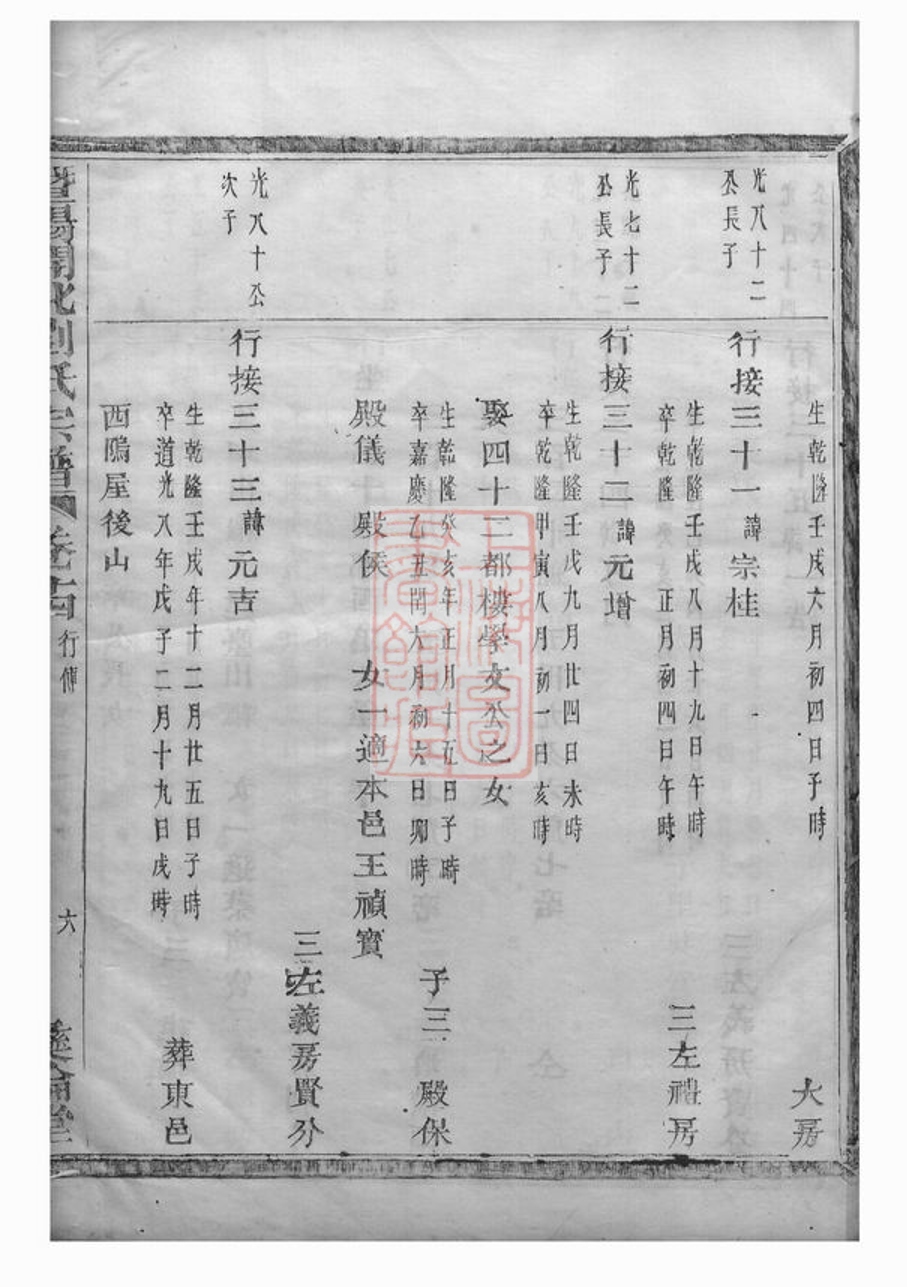 生乾隆壬戌六月初四日子時
大房
光八十二
公長子
行接三十一諱宗桂
生乾隆壬戌八月十九日午時
卒乾隆 正月初四日午時
三左禮房
光七十二
公長子
行接三十二諱元增
生乾隆壬戌九月廿四日未時
卒乾隆甲寅八月初一日亥時
娶四十二都樓學文公之女
生乾隆癸亥年正月十五日子時
卒嘉慶乙丑閏六月初六日卯時
子三 殿保
殿儀 殿侯 女一適本邑王禎寳
三左義房賢分
光八十公
次子
行接三十三諱元吉
生乾隆壬戌年十二月廿五日子時
卒道光八年戊子二月十九日戌時
葬東邑
西隖屋後山
暨陽開化劉氏宗譜 卷十四 行傳 六